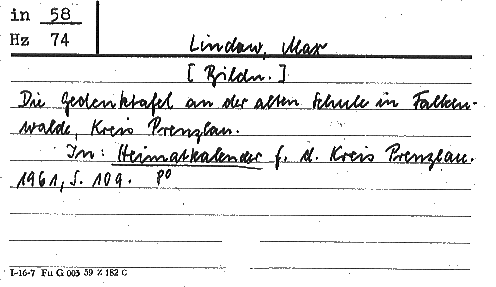 in 58
Hz 74
Lindow, Max
[Bildn.]
Die Gedenktafel an der alten Schule in Falken-
walde, Kreis Prenzlau.
In: Heimatkalender f. d. Kreis Prenzlau.
1961, S. 109. Po
I-16-7 Fu G 003 59 Z 182 C